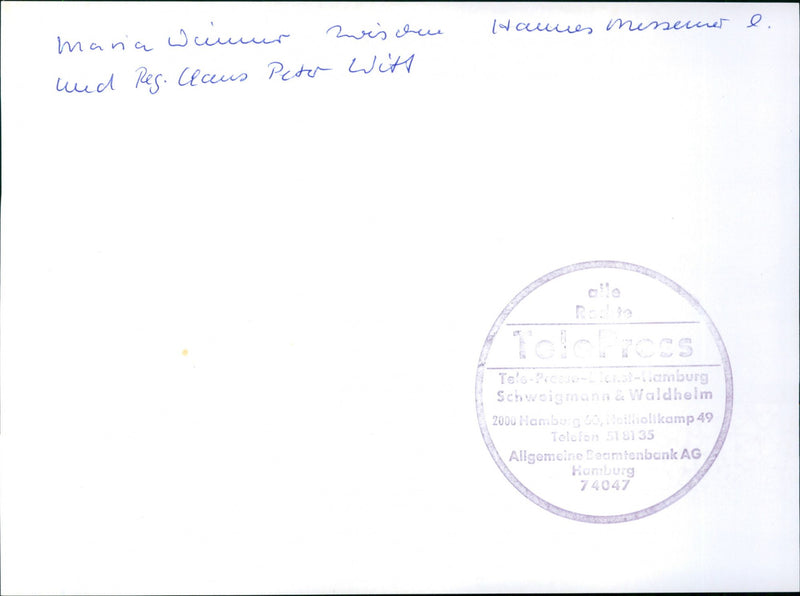 Maria Wimmer zwischen Hannes Messemer l.
und Reg. Claus Peter Witt
alle
Rechte
TelePress
Tele-Presse-Dienst-Hamburg
Schweigmann & Waldhelm
2000 Hamburg 60, 49
Telefon 51 81 35
Allgemeine Beamtenbank AG
Hamburg
74047